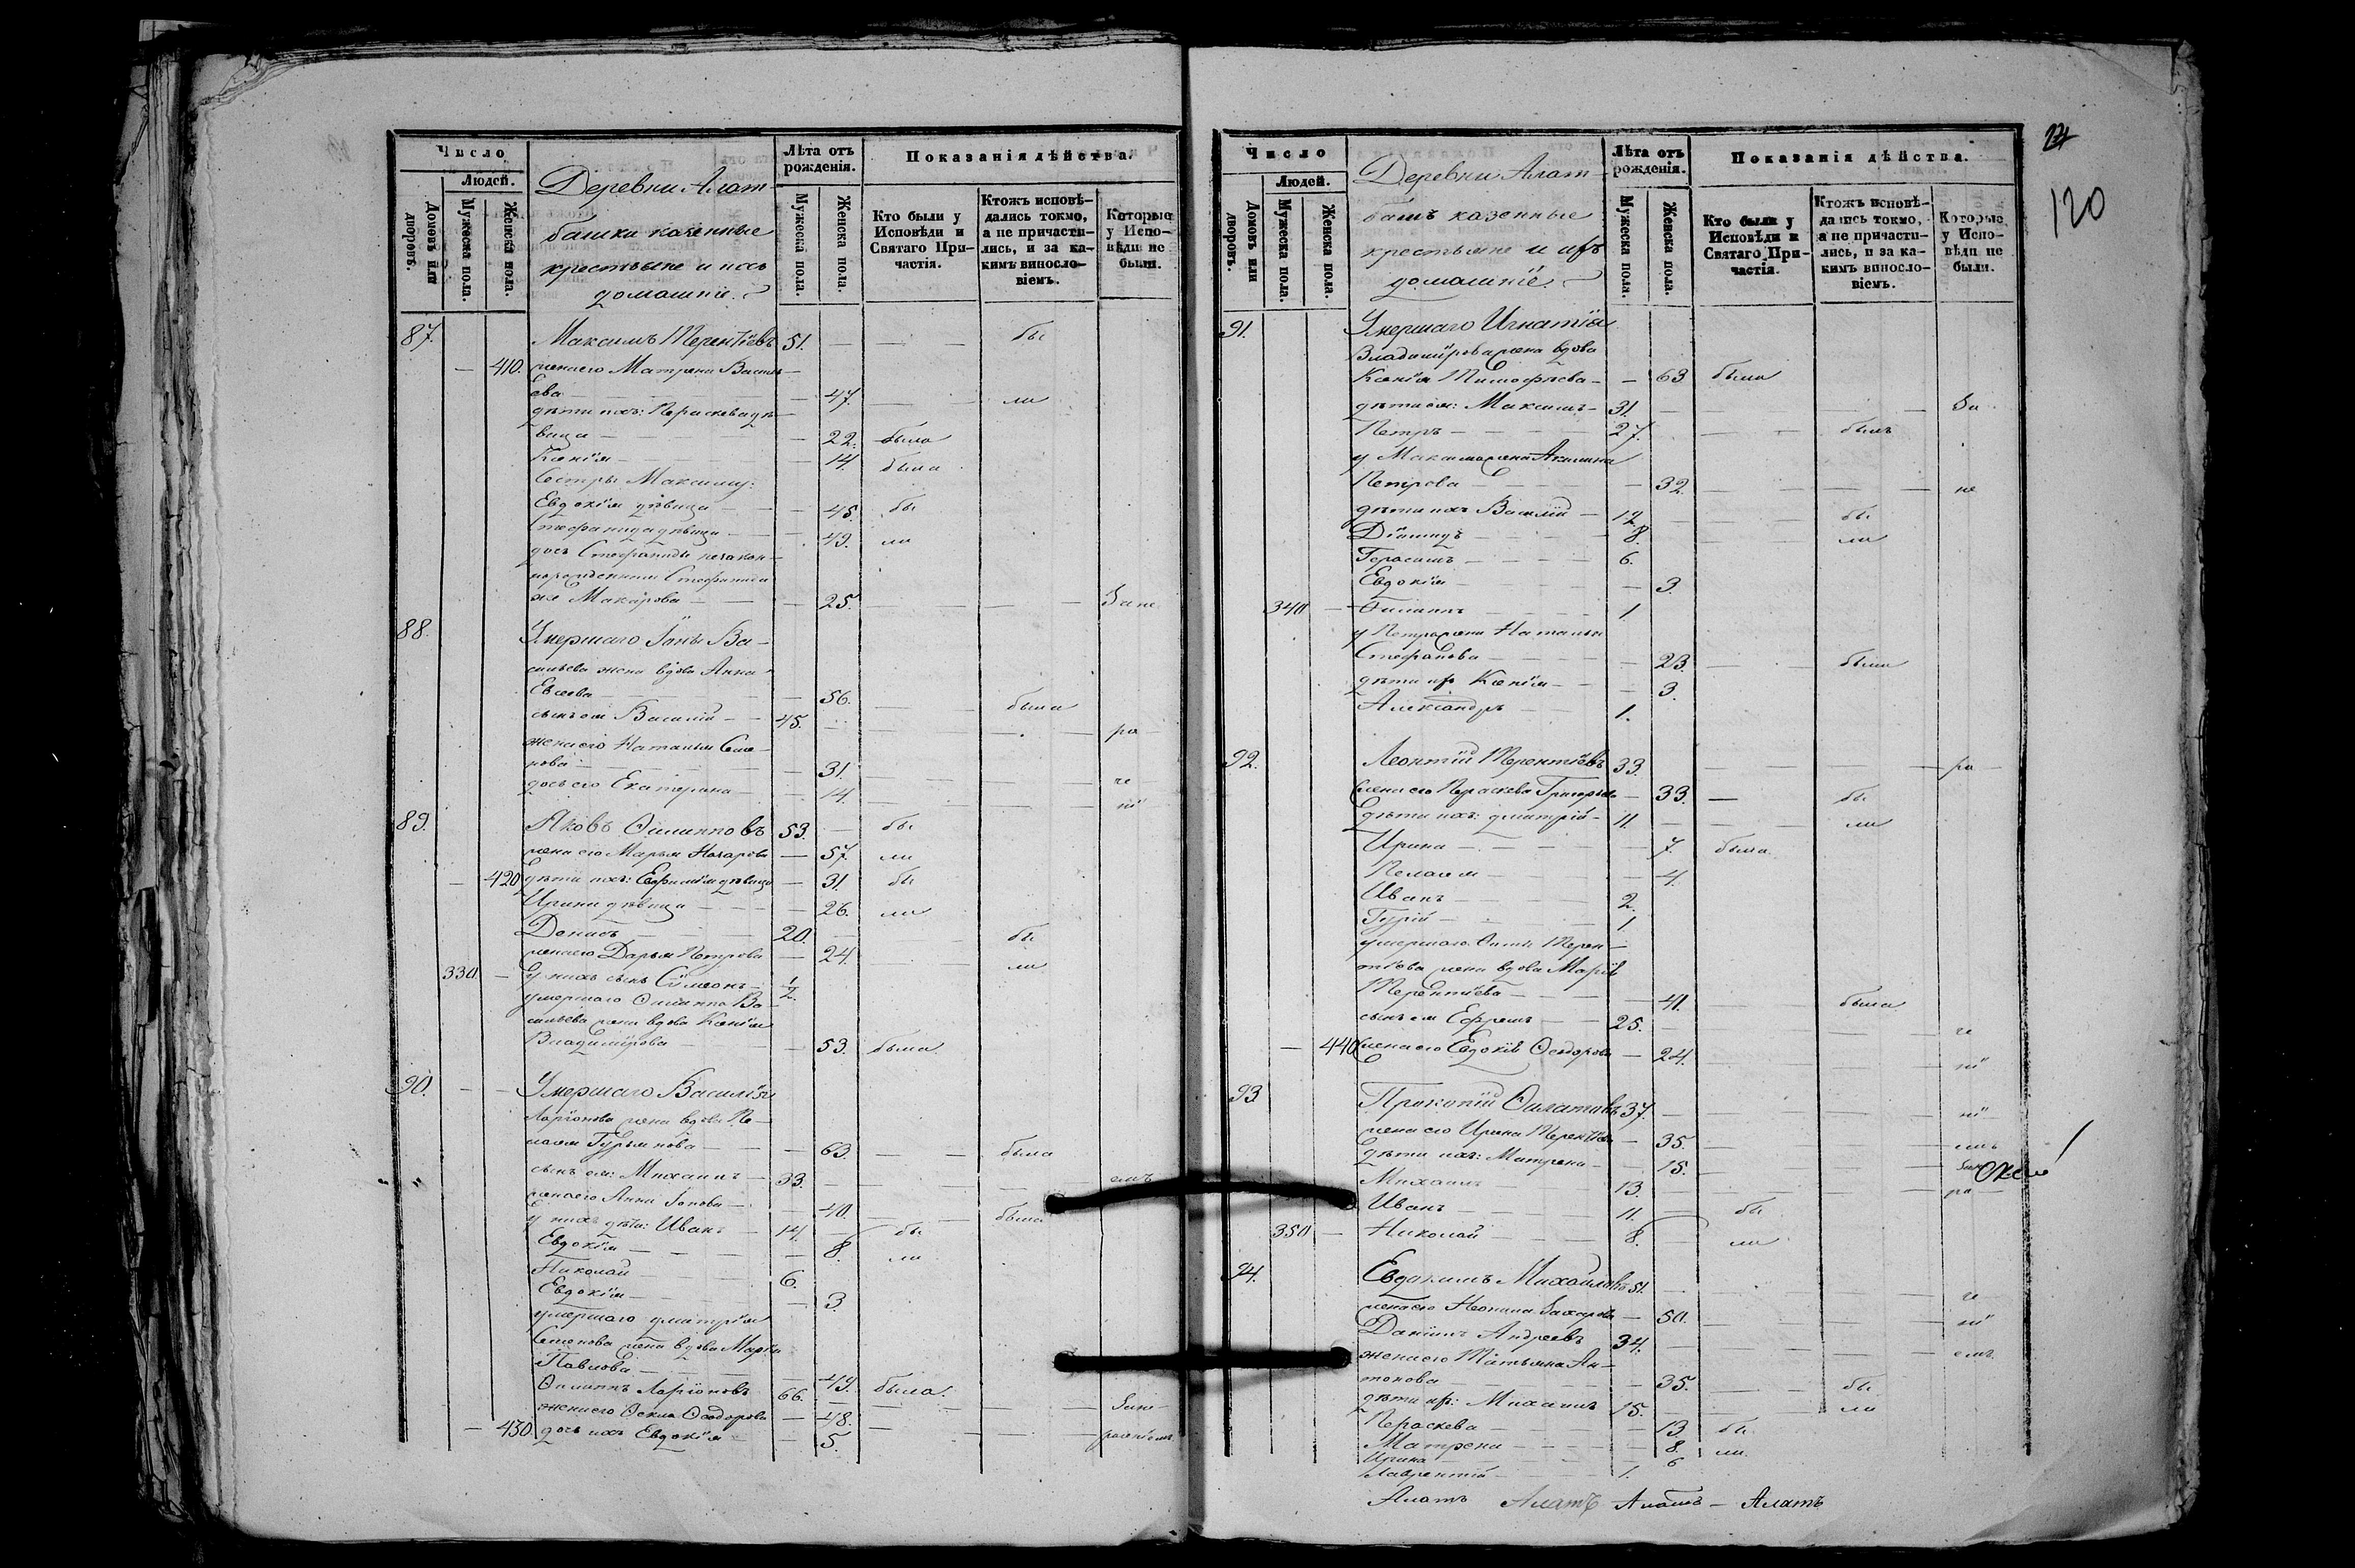 Число
Людей.
Домовъ или дворовъ.
Мужеска пола.
Женска пола.
Деревни Алат
башки казенные
крестьяне и ихъ
домашніе.
Лѣта отъ рожденія.
Мужеска пола.
Женска пола.
Показанія дѣйства.
Кто были у Исповѣди и Святаго Причастія.
Ктожъ исповѣдались токмо, а не причастились, и за какимъ винословіемъ.
Которые у Исповѣди не были.
87. Максимъ Терентіевъ 51. — — — бы
— 410. жена его Матрена Василь—
ева — — 47. — — ли
дѣти ихъ: Параскева дѣ—
вица — — 22. была
Ксенія — — 14. была
Сестры Максиму:
Евдокія дѣвица — — 45. бы
Стефанида дѣвица — — 49. ли
дочь Стефаниды незакон—
норожденная Стефанида
же Макарова — — 25. — — — За не
88. Умершаго Іоны Ва—
сильева жена вдова Анна
Евсеева — — 56. — — была
сынъ ея Василій — 45. — — — ра
жена его Наталья Семе—
нова — — 31. — — — че
дочь его Екатерина — — 14. — — — ні
89. Яковъ Филипповъ 53. — бы
жена его Марья Назарова — 57. ли
— 420. дѣти ихъ: Евфимія дѣвица — 31. бы
Ирина дѣвица — — 26. ли
Денисъ — 20. — — — бы
жена его Дарья Петрова — 24. — — ли
330. — У нихъ сынъ Сѵмеонъ — 1/2.
умершаго Филиппа Ва—
сильева жена вдова Ксенія
Владимірова — — 53. была
90. — — Умершаго Василія
Ларіонова жена вдова Пе—
лагея Гурьянова — — 63. — — была
сынъ ея: Михаилъ — 33. — — — емъ
жена его Анна Іонова — — 40. — — была
у нихъ дѣти: Иванъ — 14. — бы
Евдокія — — 8. ли
Николай — 6.
Евдокія — — 3.
умершаго Дмитрія
Семенова жена вдова Марья
Павлова — — 49. была.
Филиппъ Ларіоновъ 66. — — — Зане
жена его Фекла Ѳеодорова — 48. — — —
— 430. дочь ихъ Евдокія — — 5. — — — раченіемъ
Число
Людей.
Домовъ или дворовъ.
Мужеска пола.
Женска пола.
Деревни Алат—
башъ казенные
крестьяне и ихъ
домашніе.
Лѣта отъ рожденія.
Мужеска пола.
Женска пола.
Показанія дѣйства.
Кто были у Исповѣди и Святаго Причастія.
Ктожъ исповѣдались токмо, а не причастились, и за какимъ винословіемъ.
Которые у Исповѣди не были.
120
91. Умершаго Игнатія
Владимірова жена вдова
Ксенія Тимофѣева — — 63 была
дѣти ея: Максимъ — 31. — — — За
Петръ — 27. — — былъ
у Максима жена Акилина
Петрова — — 32. — — — не
дѣти ихъ Василій — 12 — — бы
Діомидъ — 8. — — ли
Герасимъ — 6.
Евдокія — — 3.
340 — Филиппъ — 1
у Петра жена Наталья
Стефанова — — 23. — — была
дѣти их Ксенія — — 3.
Александръ — 1.
92. Леонтій Терентіевъ 33. — — — ра
жена его Параскева Григорьева — 33. — — бы
дѣти ихъ: Дмитрій — 11. — — — ли
Ирина — — 7. была
Пелагея — — 4.
Иванъ — 2.
Гурій — 1
умершаго Терен—
тіева жена вдова Марія
Терентіева — — 41. — — была
сынъ ея Ефремъ — 25. — — — че
— 440 жена его Евдокія Ѳеодорова — 24. — — — ні
93. Прокопій Филатовъ 37. — — — ні
жена его Ирина Терентіева — 35. — — — емъ
дѣти ихъ: Матрена — — 15. — — —
Михаилъ — 13. — — — ра
Иванъ — 11. — бы
350 — Николай — 8. — ли
94. Евдокимъ Михайловъ 51. — — — че
жена его Неонила Захарова — 50. — — — ні
Даніилъ Андреевъ 34. — — — емъ
жена его Татьяна Ан—
тонова — — 35. — — бы
дѣти их: Михаилъ 15. — — ли
Параскева — — 13. бы
Матрена — — 8. ли
Ирина — — 6
Лаврентій — 1.
Алатъ Алатъ Алатъ — Алатъ